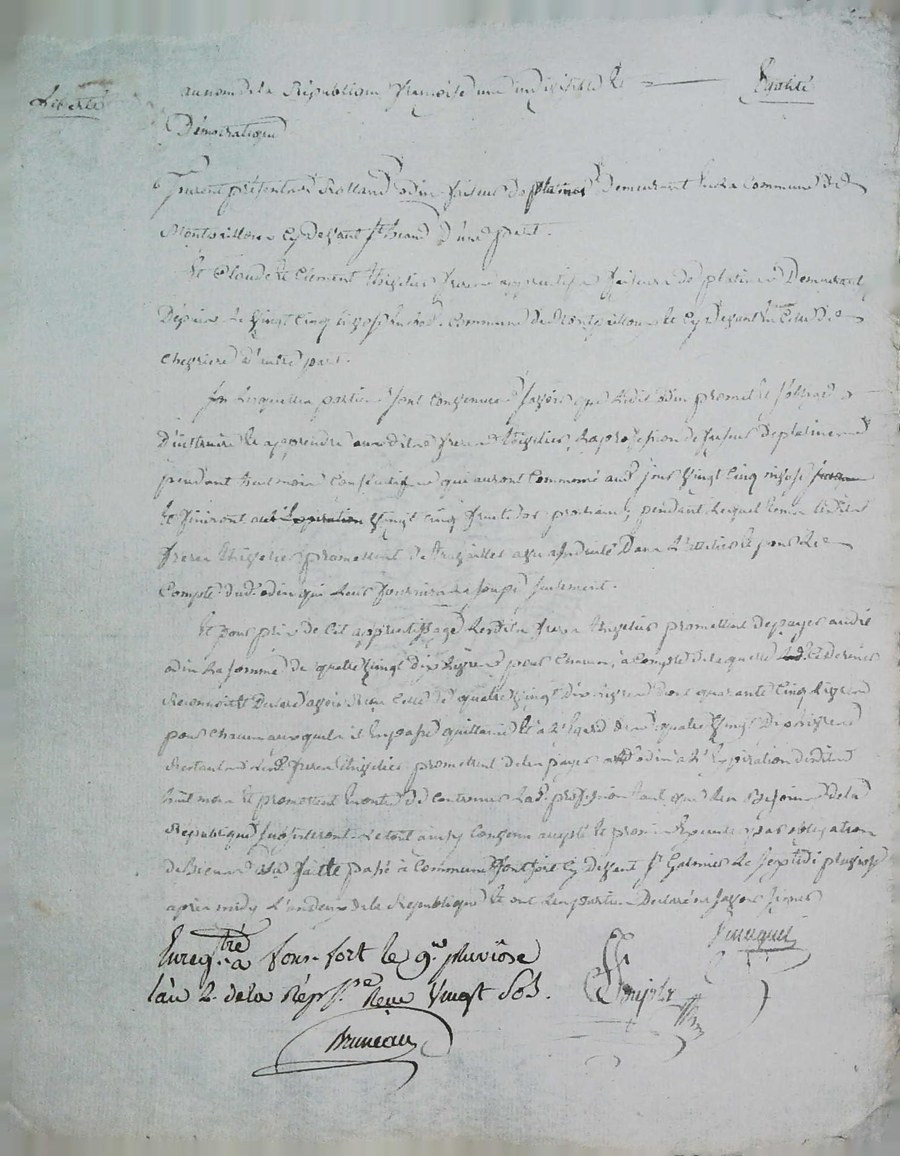 Liberté au nom de la République françoise une indivisible et Egalité
Démocratique
furent présents Rolland odin faiseur de platines Demeurant en la Commune de
Montvaillons Cy devant St héand d'une part.
Et Claude et Clement thizelier freres apprentifs faiseurs de platines Demeurant
Depuis le vingt Cinq nivose en la de Commune de Montvaillons et Cy devant en Celle de
chevrieres d'autre part.
Les quelles parties sont convenues savoir que ledit odin promet et s'oblige
D'instruire et apprendre aux dits freres thizelier la profession de faiseur de platines
pendant huit mois consécutifs qui auront Commencé au jour vingt Cinq nivose
et finiront vingt cinq fructidor prochain, pendant lequel tems lesdits
freres thizelier promettent de travailler assidument Dans l'attelier et pour le
Compte dud. odin qui leur fournira la soupe seulement.
Et pour prix de cet apprentissage lesdits freres thizelier promettent de payer audit
odin la somme de quatre vingt dix livres pour chacun, à compte de laquelle ce dernier
Reconnoit et Declare avoir reçu celle de quatre vingt dix livres donc quarante Cinq livres
pour chacun auxquels il en passe quittance et à l'egard des quatre vingt dix livres
Restantes lesd. freres thizelier promettent de les payer aud. odin à l'expiration desdits
huit mois et promettent en outre de continuer lad. profession tant que les Besoins de la
République l'exigeront. Le tout ainsy convenu accepté et promis Executer par obligation
de Biens fait et passé à Commune fontfort Cy Devant St Galmier Le septidi pluviose
après midy L'an deux de la République et ont les parties Declaré ne savoir signer
Enregtré à fons-fort le 9e pluviôse
l'an 2 de la Rép. Reçu Vingt Sols.
Bruneau